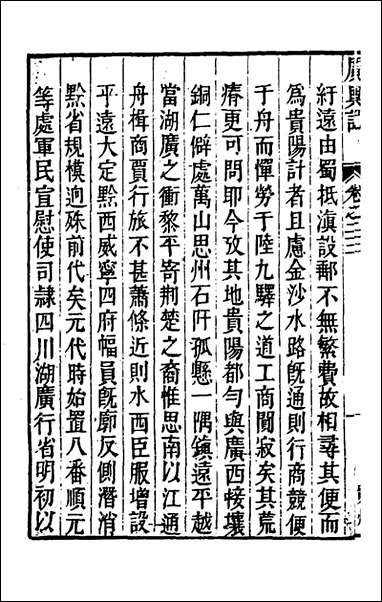 廣輿記
卷之二十二
紆遠由蜀抵滇設郵不無繁費故相尋其便而
爲貴陽計者且慮金沙水路旣通則行商競便
于舟而憚勞于陸九驛之道工商闃寂矣其荒
瘠更可問耶今攷其地貴陽都勻與廣西接壤
銅仁僻處萬山思州石阡孤懸一隅鎮遠平越
當湖廣之衝黎平寄荆楚之裔惟思南以江通
舟楫商賈行旅不甚蕭條近則水西臣服增設
平遠大定黔西威寧四府幅員旣廓反側潛消
黔省規模逈殊前代矣元代時始置八番順元
等處軍民宣慰使司隷四川湖廣行省明初以